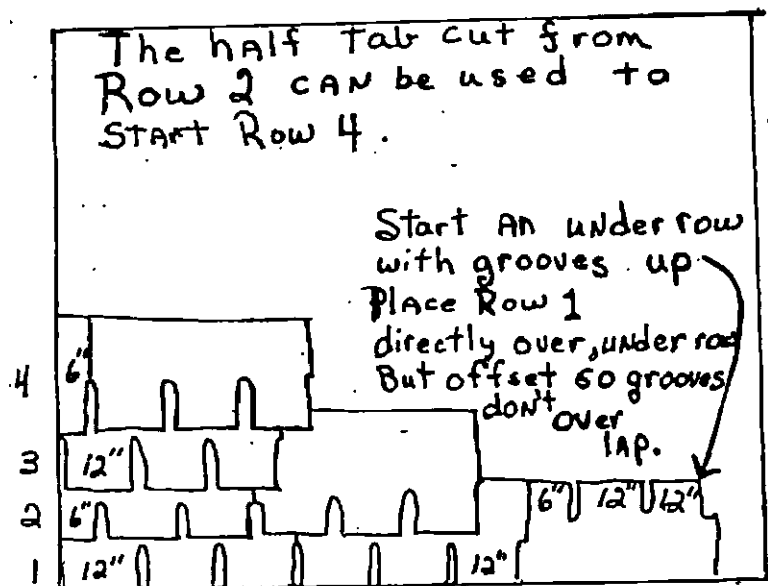 The half Tab cut from
Row 2 CAN be used to
START Row 4.
Start An under row
with grooves up
Place Row 1
directly over, under row
But offset so grooves
don't over
lap.
4 6"
3 12"
6" 12" 12"
2 6"
1 12" 12"